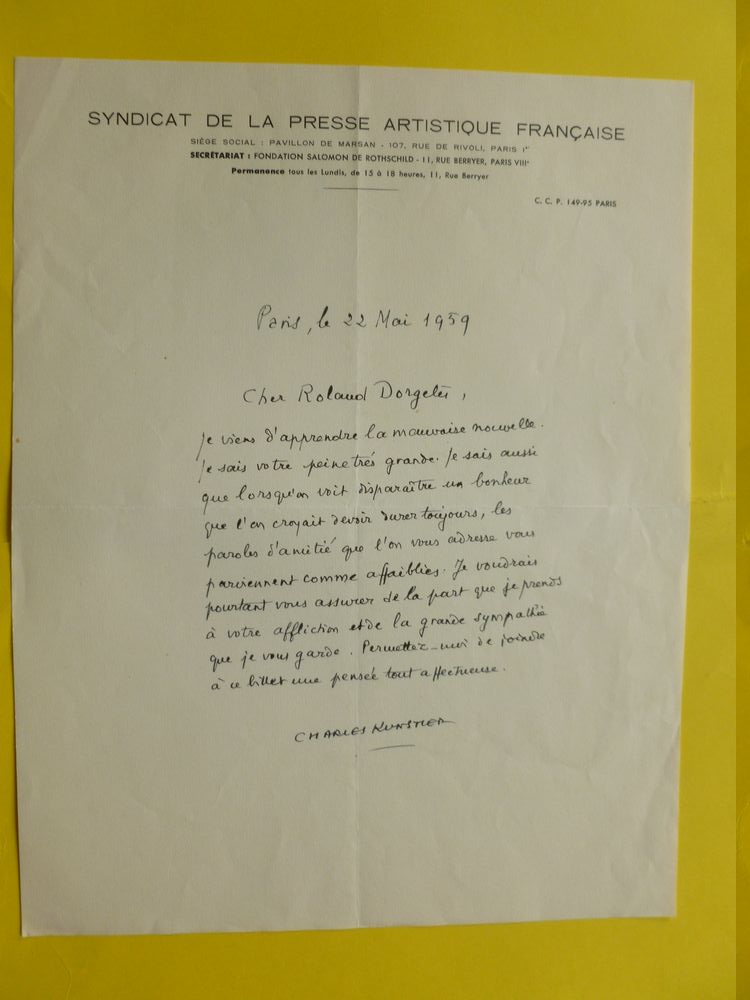 SYNDICAT DE LA PRESSE ARTISTIQUE FRANÇAISE
SIÈGE SOCIAL : PAVILLON DE MARSAN - 107, RUE DE RIVOLI, PARIS Iᵉʳ
SECRÉTARIAT : FONDATION SALOMON DE ROTHSCHILD - 11, RUE BERRYER, PARIS VIIIᵉ
Permanence tous les Lundis, de 15 à 18 heures, 11, Rue Berryer
C. C. P. 149-95 PARIS
Paris, le 22 Mai 1959
Cher Roland Dorgelès,
je viens d'apprendre la mauvaise nouvelle.
Je sais votre peine très grande. Je sais aussi
que lorsqu'on voit disparaître un bonheur
que l'on croyait devoir durer toujours, les
paroles d'amitié que l'on vous adresse vous
parviennent comme affaiblies. Je voudrais
pourtant vous assurer de la part que je prends
à votre affliction et de la grande sympathie
que je vous garde. Permettez-moi de joindre
à ce billet une pensée tout affectueuse.
CHARLES KUNSTLER